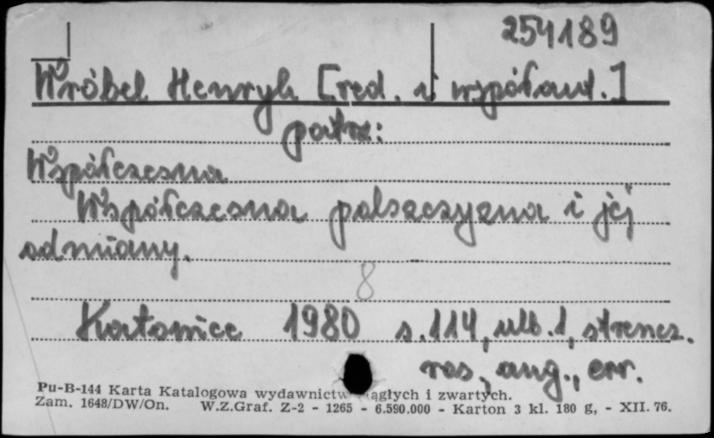 254189
Wróbel Henryk [red. i współaut.]
patrz:
Współczesna
Współczesna polszczyzna i jej
odmiany.
8
Katowice 1980 s. 114, nlb. 1, streszcz.
ros., ang., err.
Pu-B-144 Karta Katalogowa wydawnictw ciągłych i zwartych.
Zam. 1648/DW/On. W.Z.Graf. Z-2 - 1265 - 6.590.000 - Karton 3 kl. 180 g, - XII. 76.